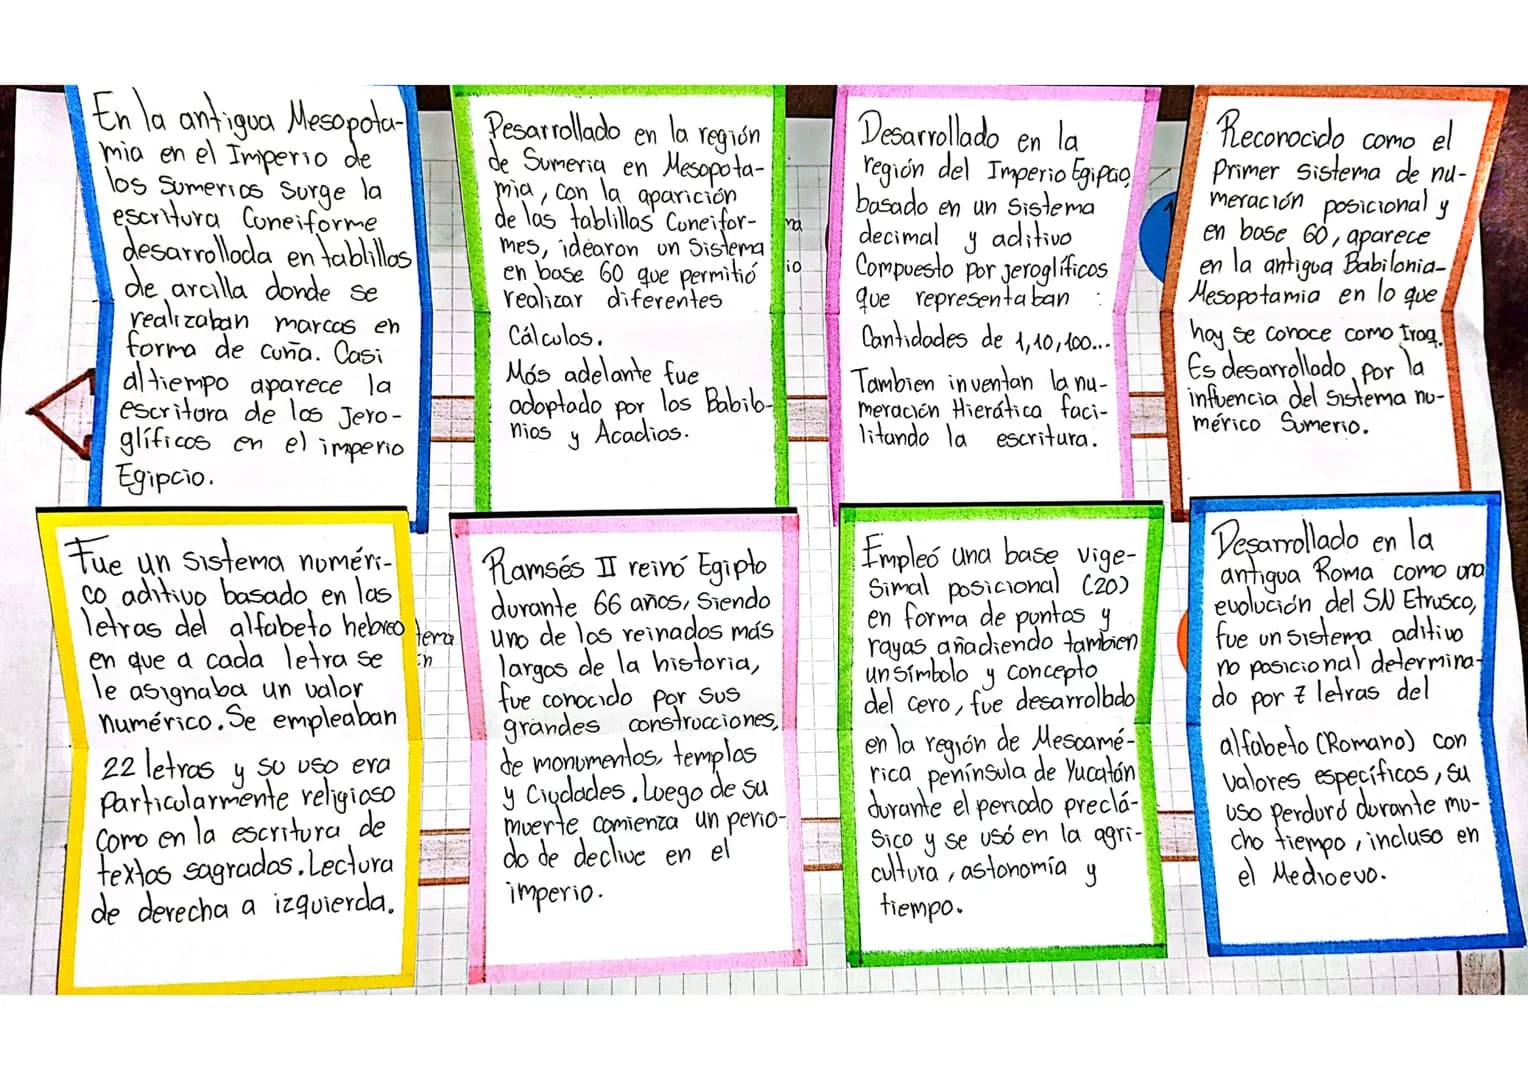 En la antigua Mesopota-
mia en el Imperio de
los Sumerios Surge la
escritura Cuneiforme
desarrollada en tablillas
de arcilla donde se
realizaban marcas en
forma de cuña. Casi
al tiempo aparece la
escritura de los Jero-
glíficos en el imperio
Egipcio.
Desarrollado en la región
de Sumeria en Mesopota-
mia, con la aparición
de las tablillas Cuneifor-
mes, idearon un Sistema
en base 60 que permitió
realizar diferentes
Cálculos.
Más adelante fue
adoptado por los Babilo-
nios y Acadios.
Desarrollado en la
región del Imperio Egipcio,
basado en un Sistema
decimal y aditivo
Compuesto por jeroglíficos
que representaban :
Cantidades de 1,10,100...
Tambien inventan la nu-
meración Hierática faci-
litando la escritura.
Reconocido como el
Primer Sistema de nu-
meración posicional y
en base 60, aparece
en la antigua Babilonia-
Mesopotamia en lo que
hoy se conoce como Iraq.
Es desarrollado por la
influencia del Sistema nu-
mérico Sumerio.
Fue un Sistema numéri-
co aditivo basado en las
letras del alfabeto hebreo
en que a cada letra se
le asignaba un valor
numérico. Se empleaban
22 letras y su uso era
particularmente religioso
Como en la escritura de
textos sagrados. Lectura
de derecha a izquierda.
Ramsés II reinó Egipto
durante 66 años, Siendo
uno de los reinados más
largos de la historia,
fue conocido por sus
grandes construcciones,
de monumentos, templos
y Ciudades. Luego de su
muerte comienza un perio-
do de declive en el
imperio.
Empleó una base vige-
simal posicional (20)
en forma de puntos y
rayas añadiendo tambien
un símbolo y concepto
del cero, fue desarrollado
en la región de Mesoamé-
rica península de Yucatán
durante el periodo preclá-
sico y se usó en la agri-
cultura, astonomía y
tiempo.
Desarrollado en la
antigua Roma como una
evolución del SN Etrusco,
fue un sistema aditivo
no posicional determina-
do por 7 letras del
alfabeto (Romano) con
valores específicos, su
uso perduró durante mu-
cho tiempo, incluso en
el Medioevo.